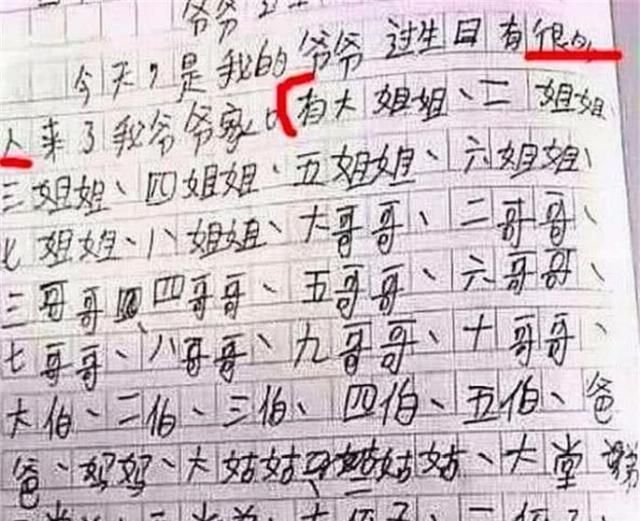 爷爷
今天,是我的爷爷过生日有很多
人来了我爷爷家,有大姐姐、二姐姐
三姐姐、四姐姐、五姐姐、六姐姐、
七姐姐、八姐姐、大哥哥、二哥哥、
三哥哥四哥哥、五哥哥、六哥哥、
七哥哥、八哥哥、九哥哥、十哥哥、
大伯、二伯、三伯、四伯、五伯、爸
爸、妈妈、大姑姑、姑姑、大堂